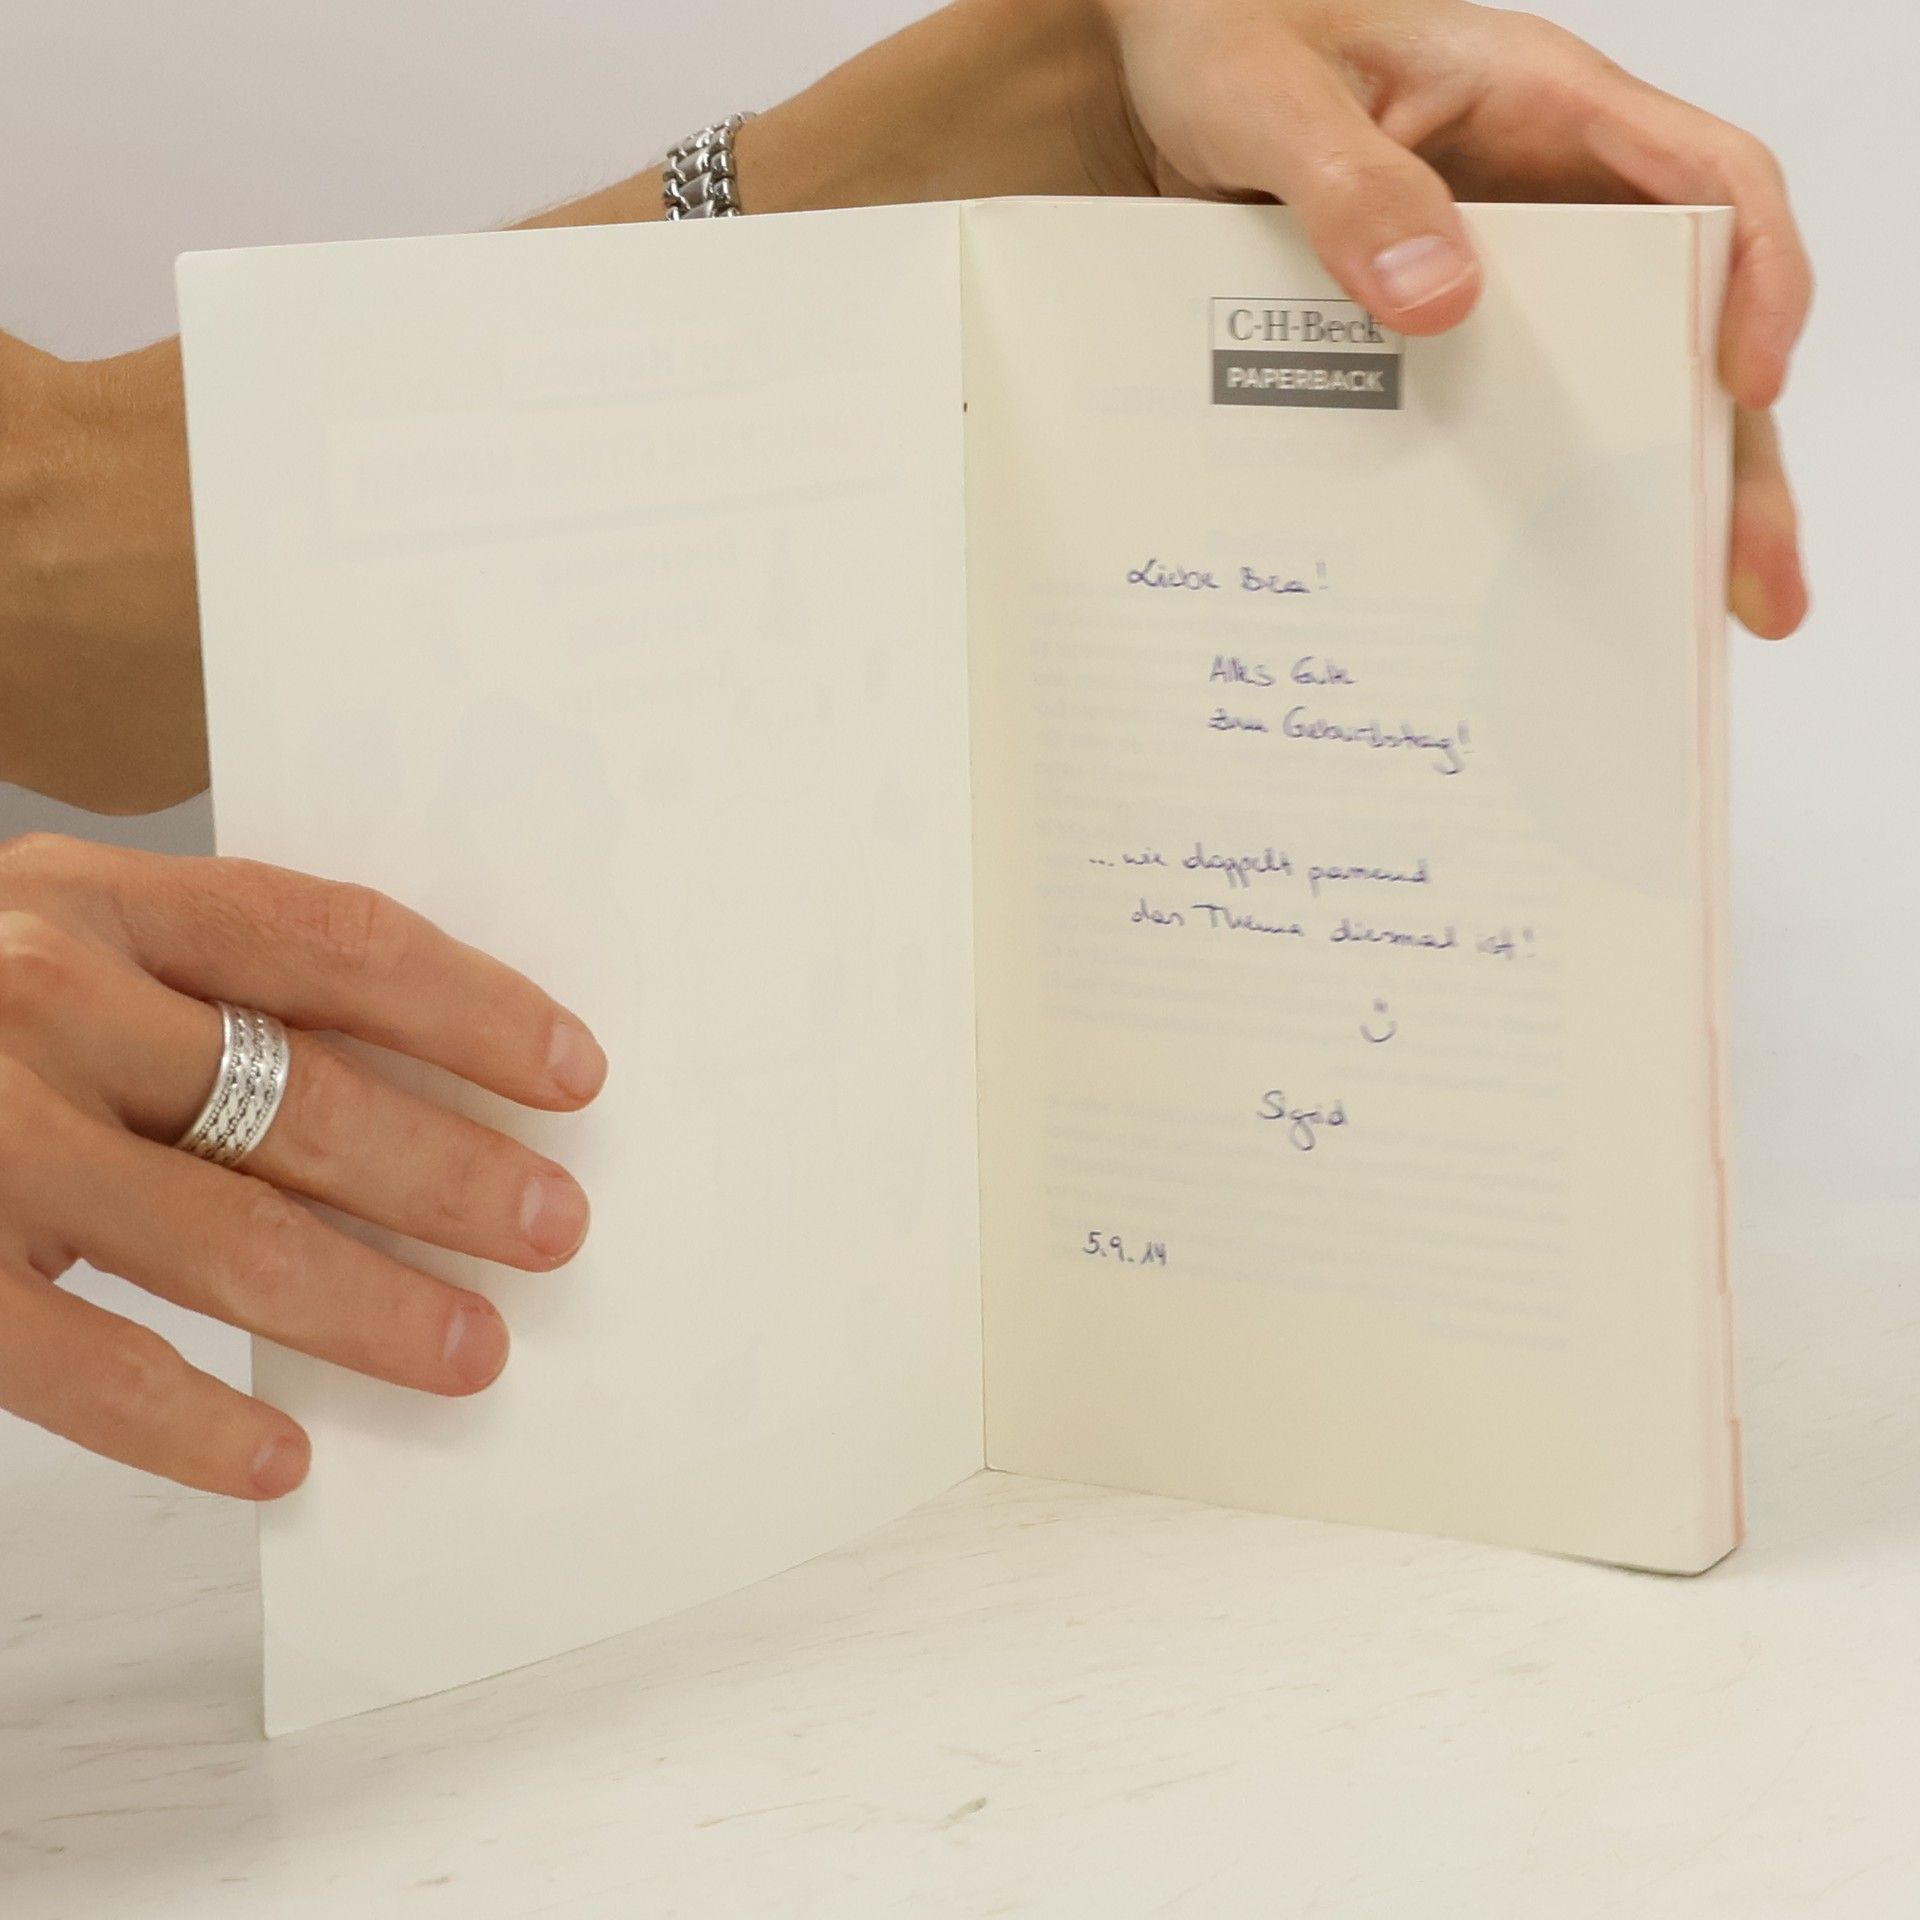 C·H·Beck
PAPERBACK
Liebe Bea!
Alles Gute
zum Geburtstag!
... wie doppelt passend
das Thema diesmal ist!
Sigrid
5.9.14